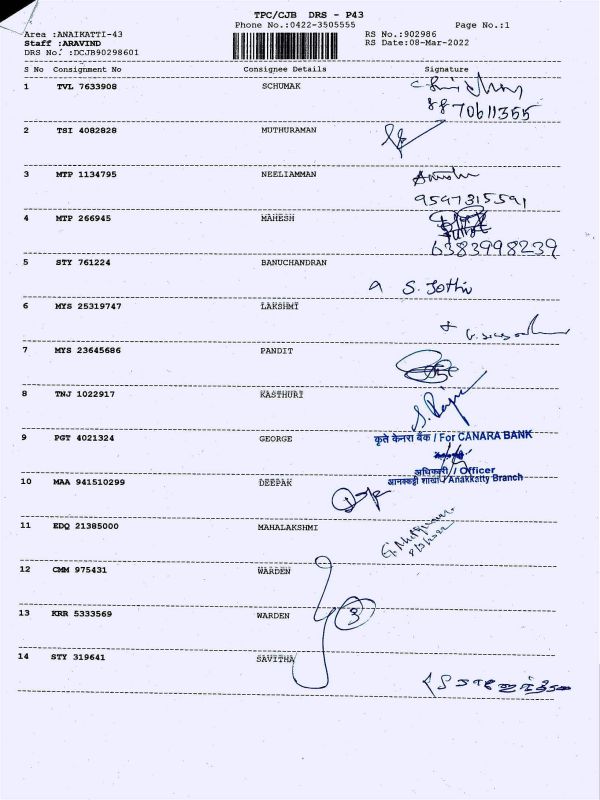 TPC/CJB DRS - P43
Phone No.:0422-3505555 Page No.:1
Area :ANAIKATTI-43 RS No.:902986
Staff :ARAVIND RS Date:08-Mar-2022
DRS No. :DCJB90298601
S No Consignment No Consignee Details Signature
1 TVL 7633908 SCHUMAK
8870611355
2 TSI 4082828 MUTHURAMAN
3 MTP 1134795 NEELIAMMAN
9597315591
4 MTP 266945 MAHESH
6383998239
5 STY 761224 BANUCHANDRAN
S. Jothi
6 MYS 25319747 LAKSHMI
7 MYS 23645686 PANDIT
8 TNJ 1022917 KASTHURI
9 PGT 4021324 GEORGE
कृते केनरा बैंक / For CANARA BANK
अधिकारी / Officer
आनक्कट्टी शाखा / Anakkatty Branch
10 MAA 941510299 DEEPAK
11 EDQ 21385000 MAHALAKSHMI
12 CMM 975431 WARDEN
13 KRR 5333569 WARDEN
3
14 STY 319641 SAVITHA